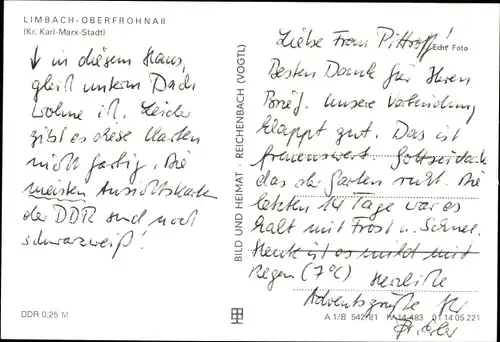 LIMBACH-OBERFROHNA II
(Kr. Karl-Marx-Stadt)
↓ in diesem Haus,
gleich unterm Dach
wohne ich. Leider
gibt es diese Karten
nicht farbig. Die
meisten Ansichtskarten
der DDR sind noch
schwarzweiß!
DDR 0,25 M
BILD UND HEIMAT · REICHENBACH (VOGTL)
Liebe Frau Pittroff!
Echt Foto
Besten Dank für Ihren
Brief. Unsere Verbindung
klappt gut. Das ist
Gottseidank
das der Garten ruht. Die
letzten 14 Tage war es
kalt mit Frost u. Schnee.
Heute ist es mild mit
Regen (7°C) Herzliche
Adventsgrüße Ihr
A 1/B 542/81 IV-14-483 01 14 05 221